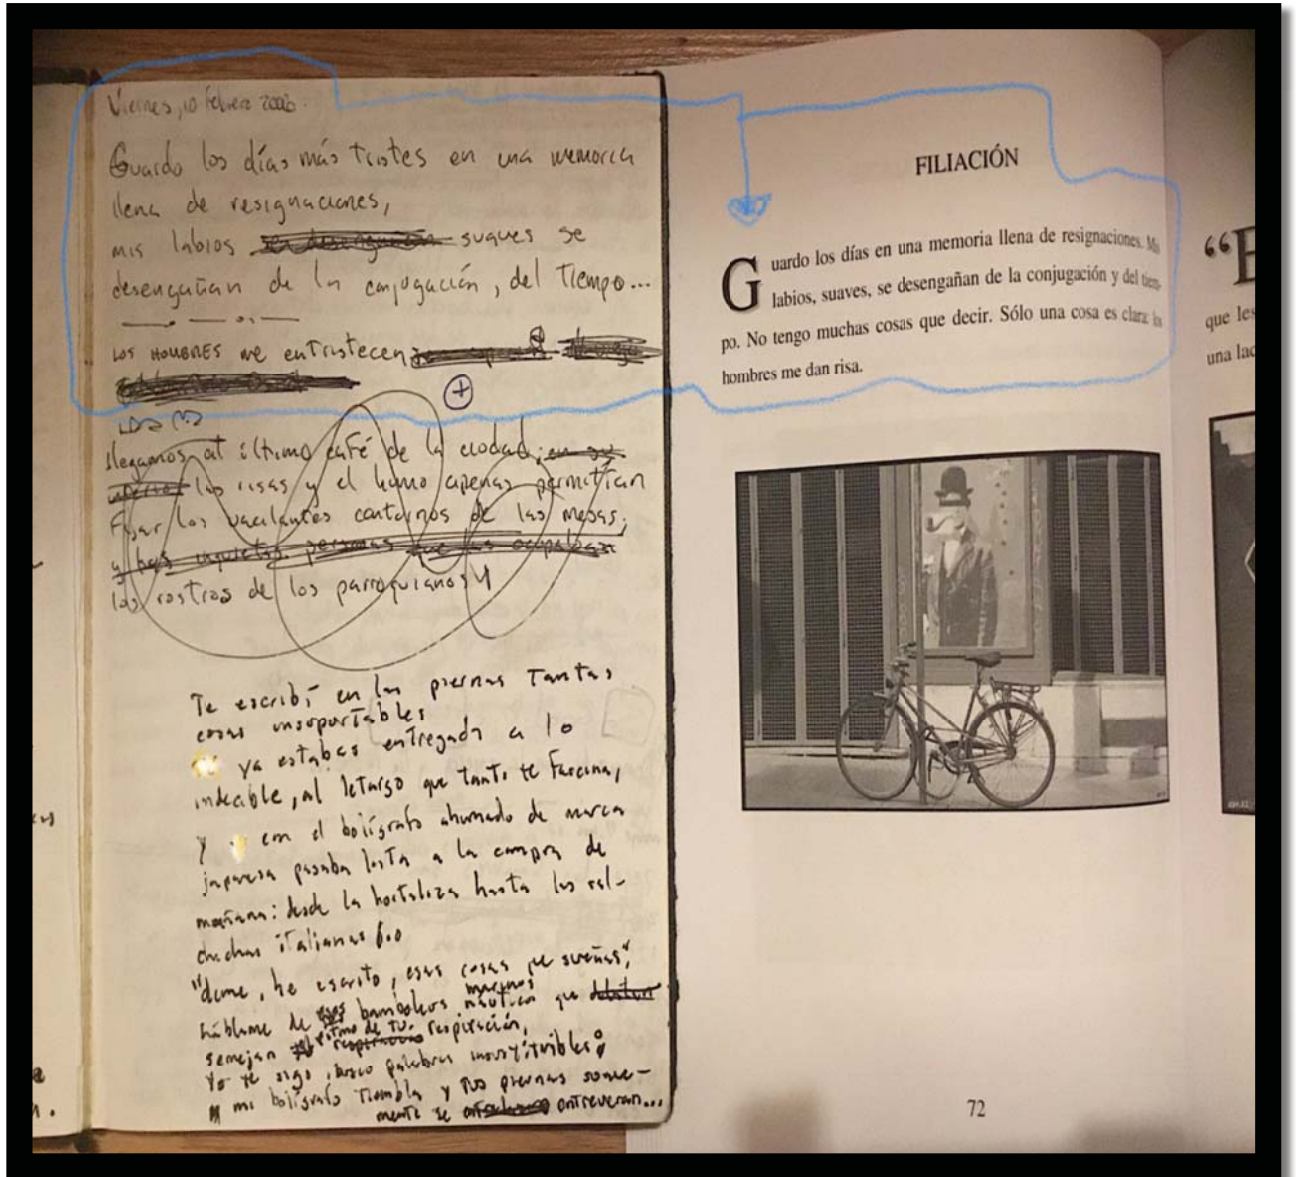 Viernes, 10 Febrero 2006.
Guardo los días más tristes en una memoria
llena de resignaciones,
mis labios suaves se
desengañan de la conjugación, del Tiempo...
LOS HOMBRES me entristecen
llegamos al último café de la ciudad,
las risas y el humo apenas permitían
Fijar los vacilantes contornos de las mesas,
los rostros de los parroquianos y
Te escribí en las piernas Tantas
cosas insoportables
ya estabas entregada a lo
indecible, al letargo que tanto te Fascina,
y con el bolígrafo ahumado de marca
japonesa pasaba lista a la compra de
mañana: desde la hortaliza hasta las sal-
chichas italianas
"dame, he escrito, esas cosas que sueñas",
háblame de bamboleos náuticos que
marinos
semejan ritmo de tu respiración,
Yo te sigo, busco palabras
mi bolígrafo Tiembla y tus piernas
mente se entreveran...
FILIACIÓN
Guardo los días en una memoria llena de resignaciones. Mis
labios, suaves, se desengañan de la conjugación y del tiem-
po. No tengo muchas cosas que decir. Sólo una cosa es clara: los
hombres me dan risa.
72
“E
que les
una lac